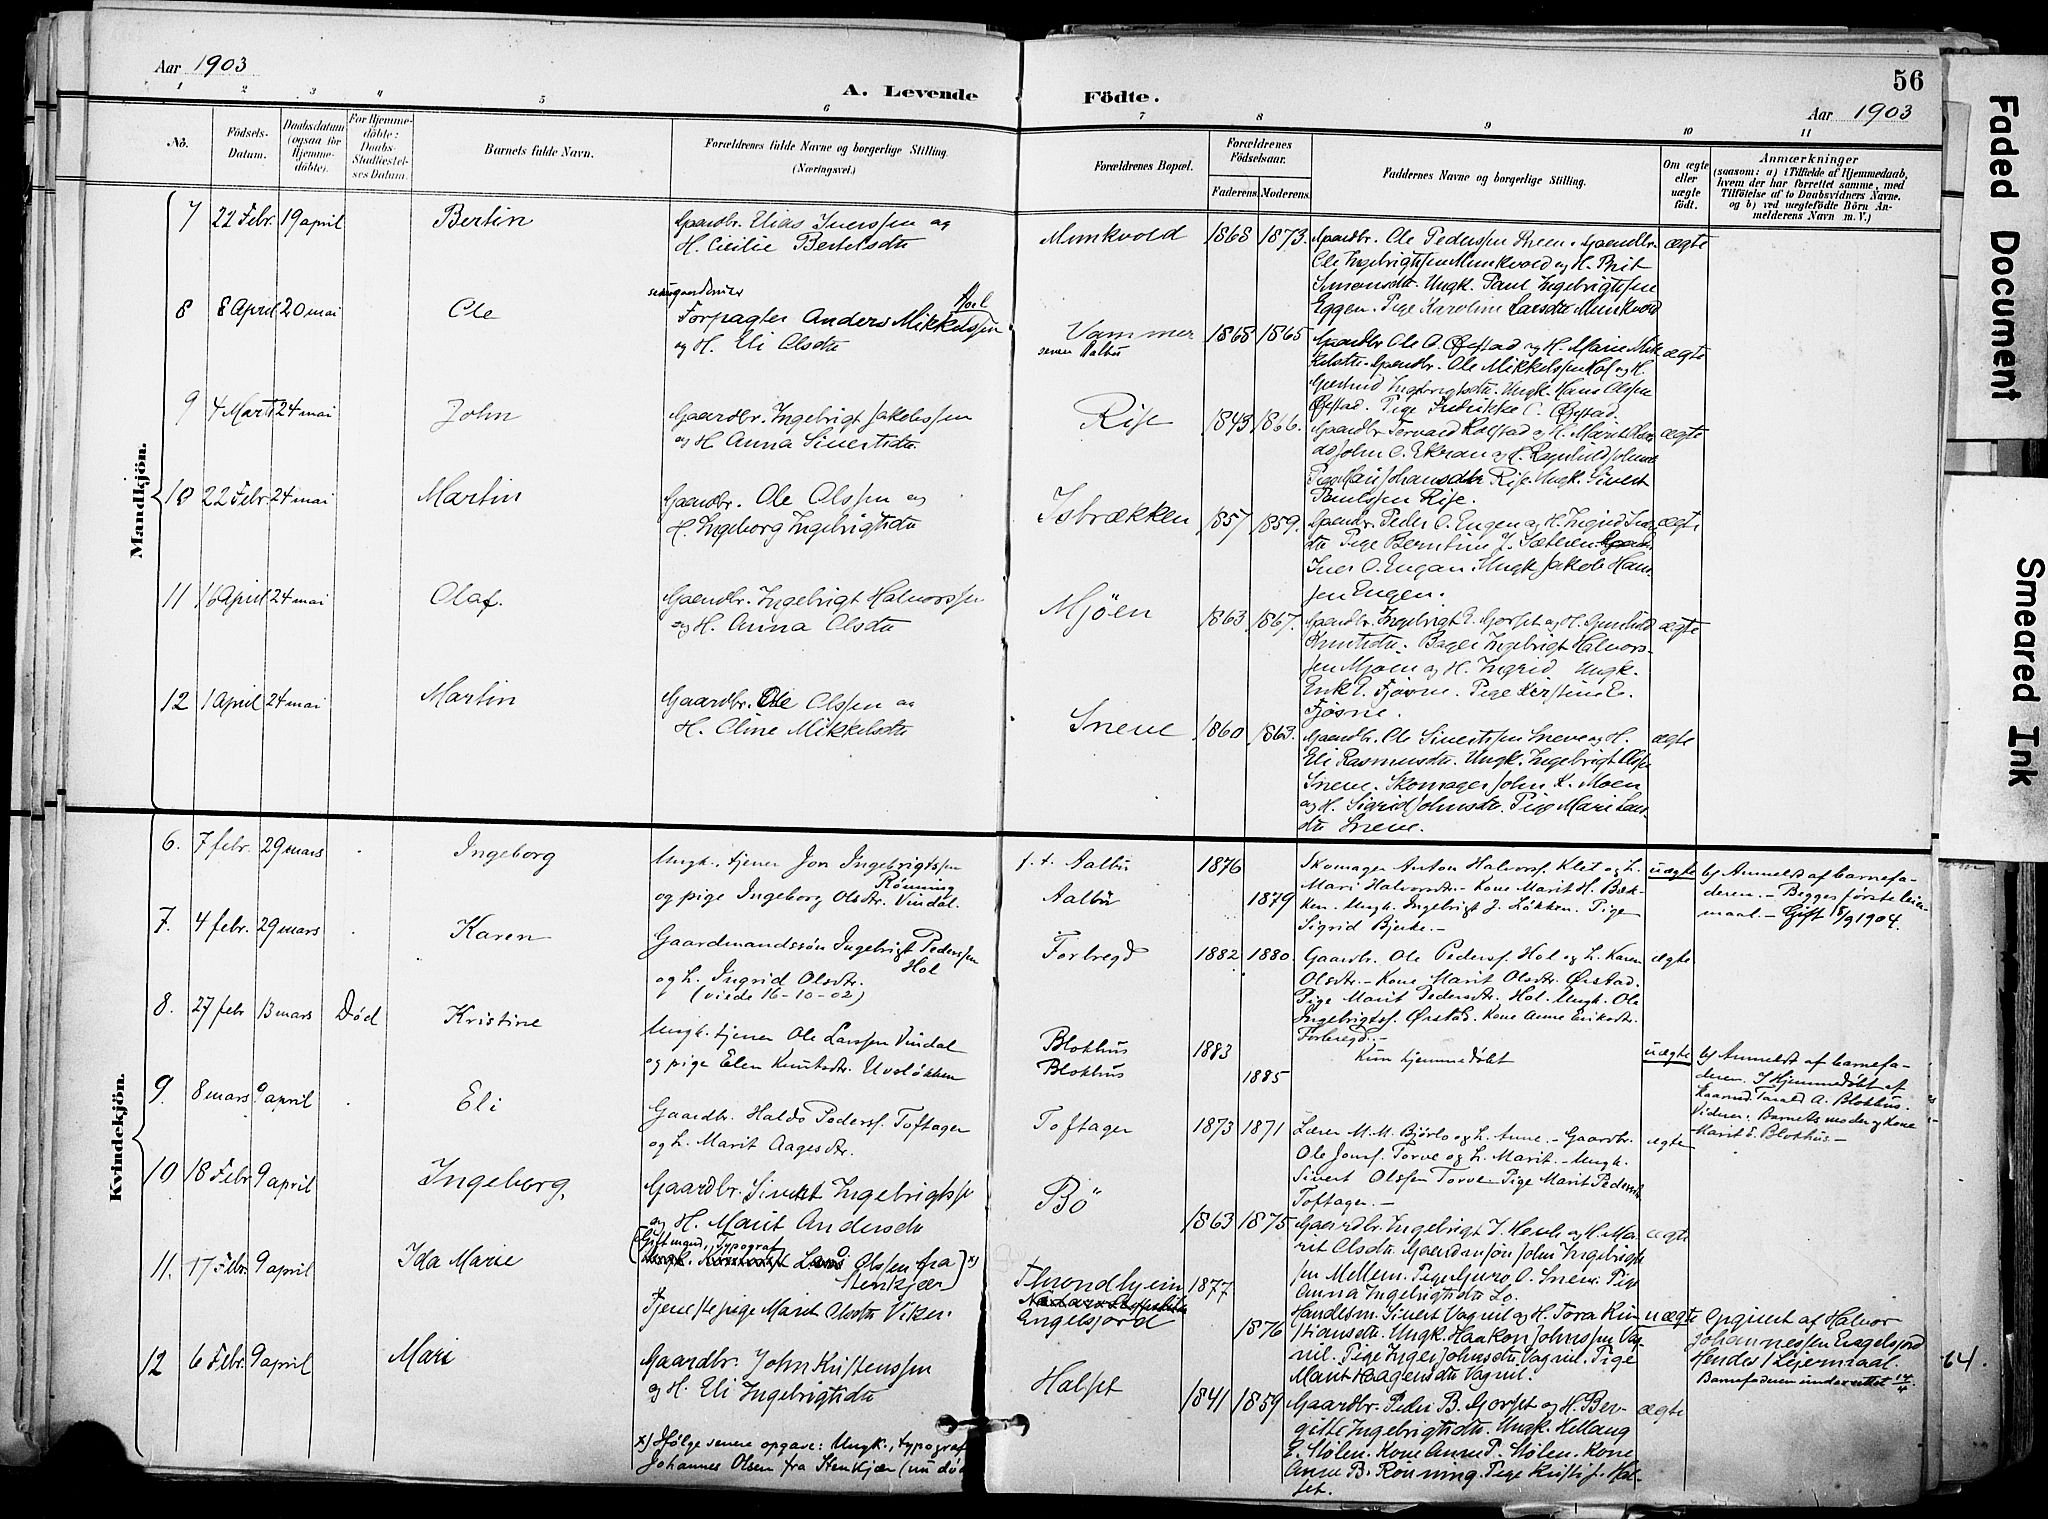 Aar 1903
A. Levende Födte.
56
Aar 1903
1 2 3 4 5 6 7 8 9 10 11
No.
Födsels-Datum.
Daabsdatum (ogsaa for Hjemmedöbte).
For Hjemmedöbte: Daabs-Stadfæstelses Datum.
Barnets fulde Navn.
Forældrenes fulde Navne og borgerlige Stilling. (Næringsvei.)
Forældrenes Bopæl.
Forældrenes Födselsaar.
Faderens. Moderens.
Faddernes Navne og borgerlige Stilling.
Om ægte eller uægte födt.
Anmærkninger
(saasom: a) i Tilfælde af Hjemmedaab, hvem der har forrettet samme, med Tilföielse af to Daabsvidners Navne. og b) ved uægtefödte Börn Anmelderens Navn m. V.)
Mandkjön.
7 22 Febr. 19 april Bertin
Gaardbr. Elias Iverssen og
H. Cicilie Bertelsdtr
Munkvold 1868 1873.
Gaardbr. Ole Pederssen Gaardbr.
Ole Ingebrigtssen Munkvold og H. Brit
Simonsdtr. Ungk. Paul Ingebrigtssen
Eggen. Pige Karoline Larsdtr Munkvold
ægte
8 8 April 20 mai Ole
senere gaardbruker
Forpagter Anders Mikkelssen Hoel
og H. Eli Olsdtr
Vammer 1868 1865
senere Aalbu
Gaardbr. Ole O. Ørstad og H. Marie Mik
kelsdtr. Gaardbr. Ole Mikkelssen Hol og H.
Ingebrigtsdtr. Ungk. Hans Olssen
Ørstad. Pige Fredrikke O. Ørstad.
ægte
9 4 Marts 24 mai John
Gaardbr. Ingebrigt Jakobssen
og H. Anna Sivertsdtr
Rise 1843 1866.
Gaardbr Torvald Kolstad og H. Marit
John O. Ekran og H. Ragnhild
Pige Mari Johansdtr Rise. Ungk. Sivert
Paulssen Rise.
ægte
10 22 Febr. 24 mai Martin
Gaardbr. Ole Olssen og
H. Ingeborg Ingebrigtsdtr
Isbrækken 1857 1859.
Gaardbr. Peder O. Engen og H. Ingrid
dtr Pige Berntine J. Sæteren
Iver O. Engan. Ungk Jakob Hans
sen Engen.
ægte
11 16 April 24 mai Olaf.
Gaardbr. Ingebrigt Halvorssen
og H. Anna Olsdtr
Mjöen 1863 1867.
Gaardbr. Ingebrigt E. Gorset og H. Gunhild
Knutsdtr. Ingebrigt Halvors-
sen Mjöen og H. Ingrid. Ungk.
Erik E. Fjösne. Pige Kerstine E.
Fjösne.
ægte
12 1 April 24 mai Martin
Gaardbr. Ole Olssen og
H. Oline Mikkelsdtr
Sneve 1860 1863.
Gaardbr. Ole Sivertssen Sneve og H.
Eli Rasmusdtr. Ungk. Ingebrigt Olssen
Sneve. Skomager John K. Moen
og H. Sigrid Johnsdtr. Pige Mari Lars
dtr Sneve.
ægte
Kvindekjön.
6. 7 febr. 29 mars Ingeborg
Ungk. tjener Jon Ingebrigtssen Rønning
og pige Ingeborg Olsdtr. Vindal.
f. t. Aalbu 1876
Aalbu 1879
Skomager Anton Halvorss. Klet og h.
Mari Halvorsdtr. Kone Marit H. Bæk-
ken. Ungk. Ingebrigt J. Løkken. Pige
Sigrid Bjerke.-
uægte
b) Anmeldt af barnefa-
deren. - Begges første leier-
maal. - Gift 18/9 1904.
7. 4 febr. 29 mars Karen
Gaardmandssön Ingebrigt Pederssen Hol
og h. Ingrid Olsdtr.
(viede 16-10-02)
Forbregd 1882 1880.
Gaardbr. Ole Pederss. Hol og h. Karen
Olsdtr. - Kone Marit Olsdtr. Ørstad.
Pige Marit Pedersdtr. Hol. Ungk. Ole
Ingebrigtss. Ørstad. Kone Anne Eriksdtr.
Forbregd.-
ægte
8. 27 febr 13 mars Død Kristine
Ungk. tjener Ole Larssen Vindal
og pige Elen Knutsdtr. Uvsløkken
Blokhus 1883
Blokhus 1885
Kun hjemmedøbt
uægte
b) Anmeldt af barnefa-
deren. Hjemmedøbt af
Gaardmd. Tarald A. Blokhus.
Vidner: Barnets moder og kone
Marit E. Blokhus.-
9. 8 mars 9 april Eli
Gaardbr. Haldo Pederss. Toftager
og h. Marit Aagesdtr.
Toftager 1873 1871
Lærer M. M. Björlo og h. Anne. - Gaardbr.
Ole Jonss. Torve og h. Marit. - Ungk.
Sivert Olssen Torve. Pige Marit Pedersdtr
Toftager.-
ægte
10 18 Febr 9 april Ingeborg.
Gaardbr. Sivert Ingebrigtssen
og H. Marit Andersdtr
Bö 1863 1875
Gaardbr. Ingebrigt J. Hevle og H. Ma-
rit Olsdtr. Gaardmanssön John Ingebrigts-
sen Mellem. Pige Guro O. Sneve. Pige
Anna Ingebrigtsdtr Lo.
ægte
11. 17 Febr. 9 april Ida Marie
(Giftmand, Typograf
Lars Olssen fra Stenkjær) x)
Tjenestepige Marit Olsdtr Viken.
Throndhjem 1877
Engelsjord 1876
Handelsm. Sivert Vagnil og H. Tora Kri
stiansdtr. Ungk. Haakon Johnssen Vag-
nil. Pige Inger Johnsdtr Vagnil. Pige
Marit Haagensdtr Vagnil.
uægte
Opgivet af Halvor
Johannessen Engelsjord
Hendes 1 Leiermaal.
Barnefaderen underrettet 14/4
64.
12 6 Febr. 9 april Mari
Gaardbr. John Kristenssen
og H. Eli Ingebrigtsdtr
Halset 1841 1859
Gaardbr. Peder B. Gorset og H. Ber-
gitte Ingebrigtsdtr. Ungk. Hellang
E. Stølen. Kone Anne P. Stølen. Kone
Anne B. Rønning. Pige Kristi J. Hal-
set.
ægte
x) Ifölge senere opgave: Ungk., typograf
Johannes Olsen fra Stenkjær (nu död
Faded Document
Smeared Ink